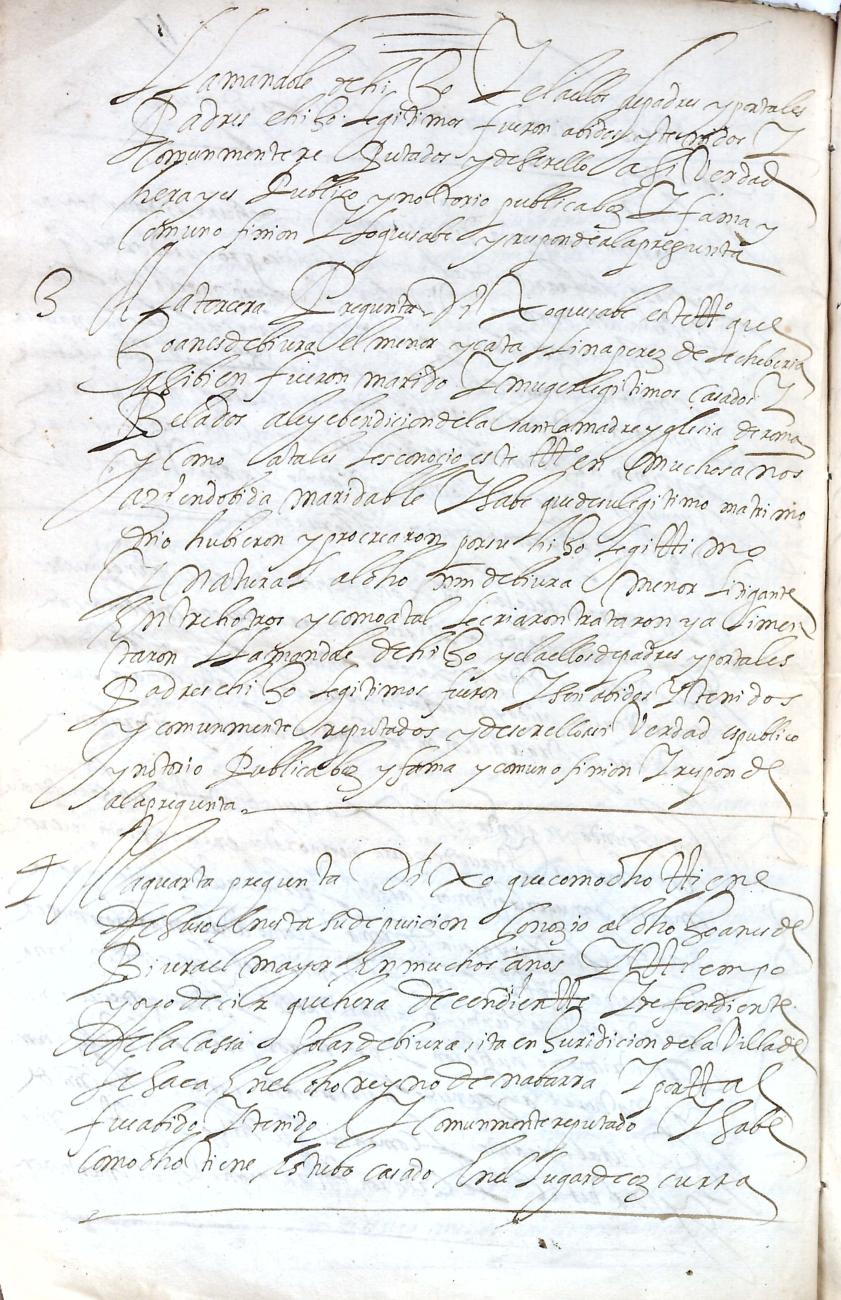 llamandole de hi Jo Y el a ellos de padres y por tales
Padres e hi Jo legitimos fueron abidos y tenidos Y
Comunmente re Putados y de ser ello a si Verdad
hera y es Publico y notorio publica boz Y fama y
Comun o pinion Y lo que sabe y responde a la pregunta
3 A la tercera Pregunta Dixo que sabe este tt.º que
Joanes de biura el menor y cata lina perez de echeberria
tasibien fueron marido Y muger legitimos casados Y
Belados a ley e bendicion de la santa madre yglesia de roma
y como a tales les conocio este tt.º en muchos años
azer
do bida maridable Y sabe que de su legitimo matrimo
nio hubieron y procrearon por su hi Jo legitti mo
Y natural al dho mın de biura menor litigante
Entre hotros y como a tal le criaron trataron y a limen
taron llamandole de hi Jo y el a ellos de padres y por tales
Padres e hi Jo legitimos fueron Y son abidos Y tenidos
y comunmente reputados y de ser ello asi Verdad es publico
y notorio Publica boz y fama y comun o pinion Y respon de
a la pregunta
4 A la quarta pregunta Dixo que como dho ttiene
de suso En esta su deposicion Conozio al dho Joanes de
Biura el mayor En muchos años Y ttiempo
y oyo decir que hera decendientte Y refendiente
de la cassa solar de biura sita en Juridicion de la Villa de
lesaca En el dho reyno de nabarra Y por ttal
fue abido Y tenido Y Comunmente reputado Y sabe
Como dho tiene Estubo casado En el lugar de ezcurra